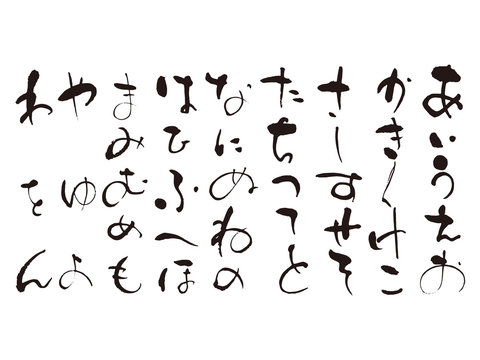 あいうえお
かきくけこ
さしすせそ
たちつてと
なにぬねの
はひふへほ
まみむめも
やゆよ
わをん